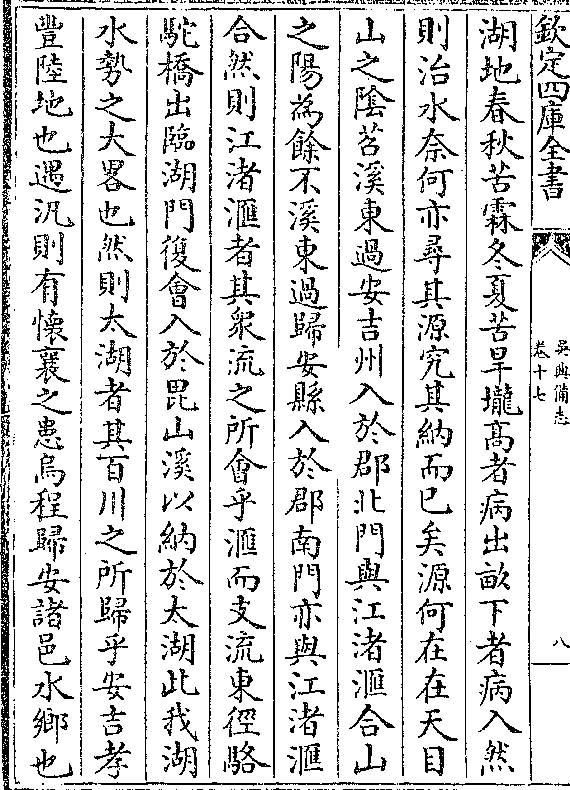 欽定四庫全書
吳興備志
卷十七
八
湖地春秋苦霖冬夏苦旱壠髙者病出畝下者病入然
則治水奈何亦尋其源究其納而已矣源何在在天目
山之陰苕溪東過安吉州入於郡北門與江渚滙合山
之陽為餘不溪東過歸安縣入於郡南門亦與江渚滙
合然則江渚滙者其衆流之所會乎滙而支流東徑駱
駝橋出臨湖門復會入於毘山溪以納於太湖此我湖
水勢之大畧也然則太湖者其百川之所歸乎安吉孝
豐陸地也遇汎則有懐襄之患烏程歸安諸邑水鄉也